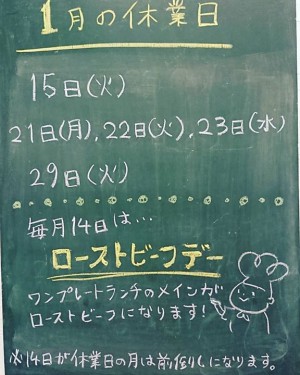 1月の休業日
15日(火)
21日(月),22日(火),23日(水)
29日(火)
毎月14日は…
ローストビーフデー
ワンプレートランチのメインが
ローストビーフになります!
※14日が休業日の月は前倒しになります。